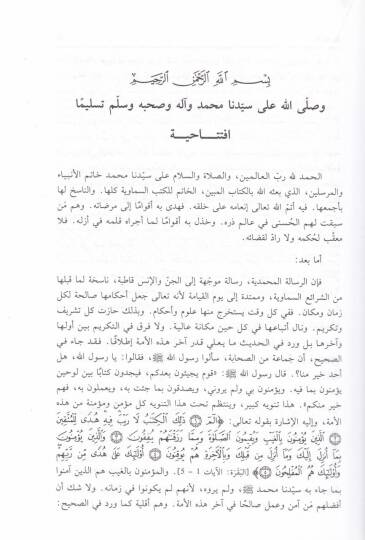 بِسْمِ اللَّهِ الرَّحْمَٰنِ الرَّحِيمِ
وصلّى الله على سيّدنا محمد وآله وصحبه وسلّم تسليمًا
افتتاحية
الحمد لله ربّ العالمين، والصلاة والسلام على سيّدنا محمد خاتم الأنبياء
والمرسلين، الذي بعثه الله بالكتاب المبين، الخاتم للكتب السماوية كلها. والناسخ لها
بأجمعها. فيه أتمّ الله تعالى إنعامه على خلقه. فهدى به أقوامًا إلى مرضاته. وهم مَن
سبقت لهم الحُسنى في عالم ذره. وخذل به أقوامًا لما أجراه قلمه في أزله. فلا
معقّب لحُكمه ولا رادّ لقضائه.
أما بعد:
فإن الرسالة المحمدية، رسالة موجّهة إلى الجنّ والإنس قاطبة، ناسخة لما قبلها
من الشرائع السماوية، وممتدة إلى يوم القيامة لأنه تعالى جعل أحكامها صالحة لكل
زمان ومكان. ففي كل وقت يستخرج منها علوم وأحكام. وبذلك حازت كل تشريف
وتكريم. ونال أتباعها في كل حين مكانة عالية. ولا فرق في التكريم بين أولها
وآخرها بل ورد في الحديث ما يعلي قدر آخر هذه الأمة إطلاقًا. فقد جاء في
الصحيح، أن جماعة من الصحابة، سألوا رسول الله ﷺ، فقالوا: يا رسول الله، هل
أحد خير منا؟. قال رسول الله ﷺ: «قوم يجيئون بعدكم، فيجدون كتابًا بين لوحين
يؤمنون بما فيه. ويؤمنون بي ولم يروني، ويصدقون بما جئت به، ويعملون به، فهم
خير منكم». هذا تنويه كبير، وينتظم تحت هذا التنويه كل مؤمن ومؤمنة من هذه
الأمة، وإليه الإشارة بقوله تعالى: ﴿الٓمٓ ۝ ذَٰلِكَ الْكِتَٰبُ لَا رَيْبَ فِيهِ هُدًى لِّلْمُتَّقِينَ
۝ الَّذِينَ يُؤْمِنُونَ بِالْغَيْبِ وَيُقِيمُونَ الصَّلَوٰةَ وَمِمَّا رَزَقْنَٰهُمْ يُنفِقُونَ ۝ وَالَّذِينَ يُؤْمِنُونَ
بِمَا أُنزِلَ إِلَيْكَ وَمَا أُنزِلَ مِن قَبْلِكَ وَبِالْآخِرَةِ هُمْ يُوقِنُونَ ۝ أُوْلَٰئِكَ عَلَىٰ هُدًى مِّن رَّبِّهِمْ
وَأُوْلَٰئِكَ هُمُ الْمُفْلِحُونَ ۝﴾ [البَقَرَة: الآيات ١ - ٥]. والمؤمنون بالغيب هم الذين آمنوا
بما جاء به سيّدنا محمد ﷺ، ولم يروه، لأنهم لم يكونوا في زمانه. ولا شك أن
أفضلهم مَن آمن وعمل صالحًا في آخر هذه الأمة. وهم أقلية كما ورد في الصحيح: